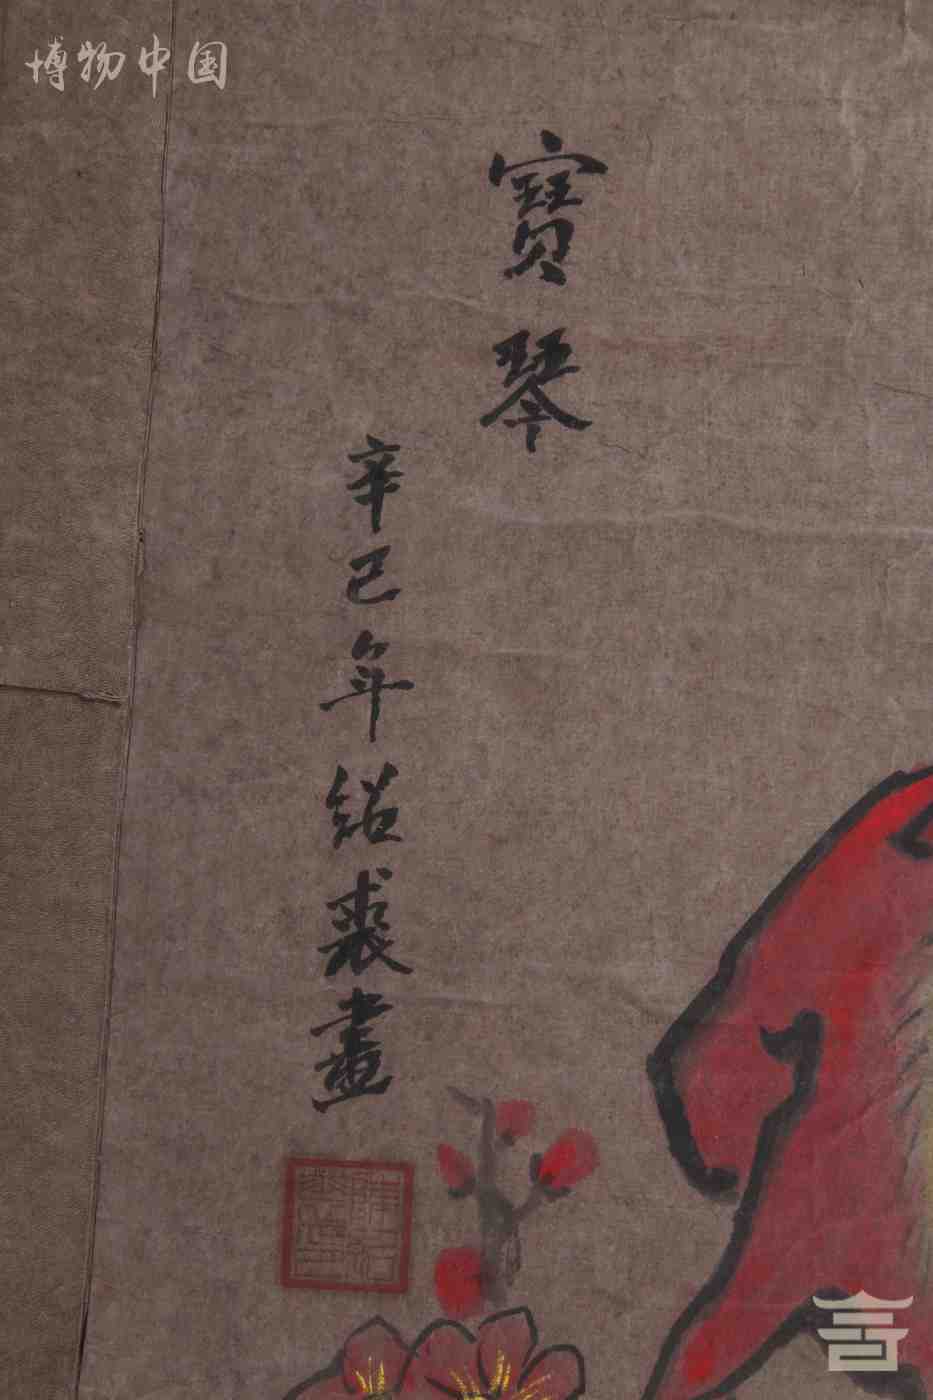 博物中国
寶琴
辛己年紹裘畫